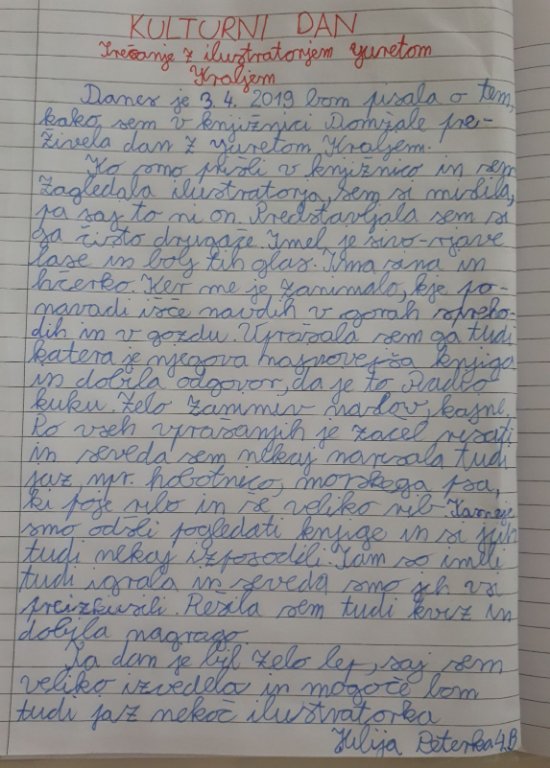 KULTURNI DAN
Srečanje z ilustratorjem Juretom
Kraljem
Danes je 3.4. 2019 bom pisala o tem,
kako sem v knjižnici Domžale pre-
živela dan z Juretom Kraljem.
Ko smo prišli v knjižnico in sem
zagledala ilustratorja, sem si mislila,
pa saj to ni on. Predstavljala sem si
ga čisto drugače. Imel je sivo-rjave
lase in bolj tih glas. Ima sina in
hčerko. Ker me je zanimalo, kje po-
navadi išče navdih v gorah spreho-
dih in v gozdu. Vprašala sem ga tudi
katera je njegova najnovejša knjiga
in dobila odgovor, da je to Radio
kuku. Zelo zanimiv naslov, kajne.
Po vseh vprašanjih je začel risati
in seveda sem nekaj narisala tudi
jaz npr. hobotnico, morskega psa,
ki poje ribo in še veliko rib. Kasneje
smo odšli pogledati knjige in si jih
tudi nekaj izposodili. Tam so imeli
tudi igrala in seveda smo jih vsi
preizkusili. Rešila sem tudi kviz in
dobila nagrago
Ta dan je bil zelo lep, saj sem
veliko izvedela in mogoče bom
tudi jaz nekoč ilustratorka
Julija Peterka 4.B